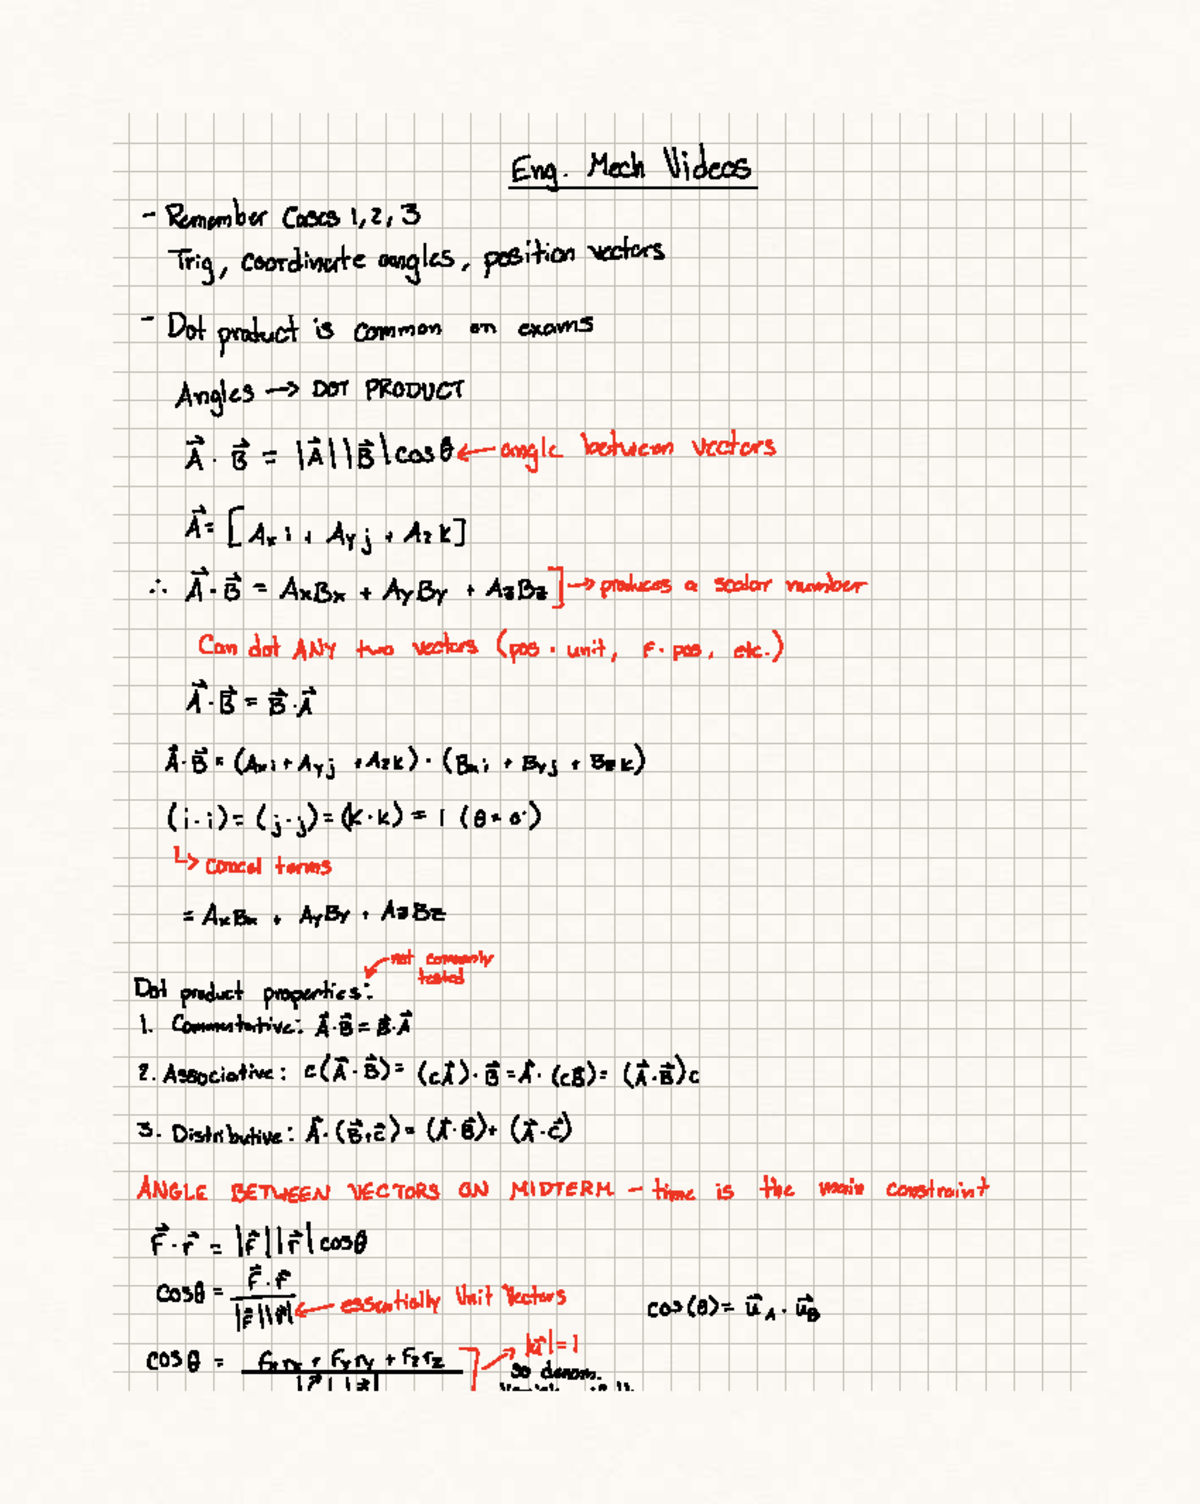 Eng. Mech Videos
- Remember Cases 1, 2, 3
Trig, coordinate angles, position vectors
- Dot product is common on exams
Angles → DOT PRODUCT
A⃗ · B⃗ = |A⃗||B⃗|cosθ ← angle between vectors
A⃗ = [Axi + Ayj + Azk]
∴ A⃗·B⃗ = AxBx + AyBy + AzBz] → produces a scalar number
Can dot ANY two vectors (pos · unit, F · pos, etc.)
A⃗·B⃗ = B⃗·A⃗
A⃗·B⃗ = (Axi + Ayj + Azk) · (Bxi + Byj + Bzk)
(i·i) = (j·j) = (k·k) = 1 (θ = 0°)
↳ cancel terms
= AxBx + AyBy + AzBz
not commonly
tested
Dot product properties:
1. Commutative: A⃗·B⃗ = B⃗·A⃗
2. Associative: c(A⃗·B⃗) = (cA⃗)·B⃗ = A⃗·(cB⃗) = (A⃗·B⃗)c
3. Distributive: A⃗·(B⃗+C⃗) = (A⃗·B⃗) + (A⃗·C⃗)
ANGLE BETWEEN VECTORS ON MIDTERM - time is the main constraint
F⃗·r⃗ = |F⃗||r⃗|cosθ
cosθ = F⃗·r⃗ / |F⃗||r⃗| ← essentially Unit Vectors
cos(θ) = u⃗A · u⃗B
cosθ = Fxrx + Fyry + Fzrz ] → |u⃗| = 1
so denom.